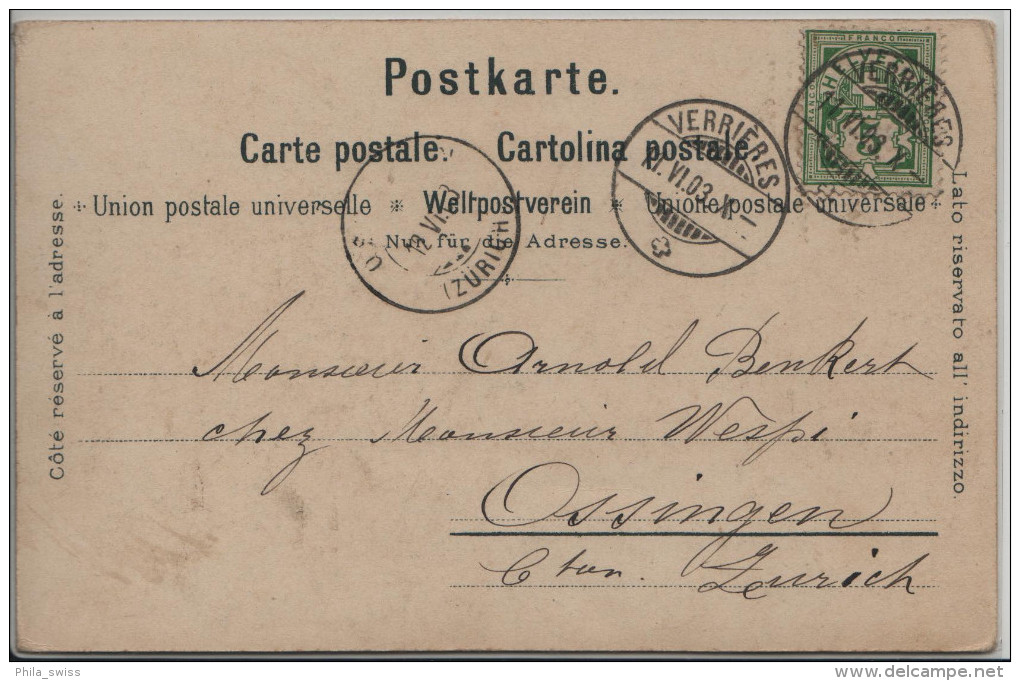 Postkarte.
Carte postale. Cartolina postale.
Union postale universelle ※ Weltpostverein ※ Unione postale universale
Nur für die Adresse.
Côté réservé à l'adresse.
Lato riservato all' indirizzo.
FRANCO
HELVETIA
FRANCO
5
VERRIÈRES
VI.03.X
VERRIÈRES
12 VI.03
(ZÜRICH)
Monsieur Arnold Benkert
chez Monsieur Wespi
Ossingen
Cton. Zurich
Phila_swiss
delcampe.net